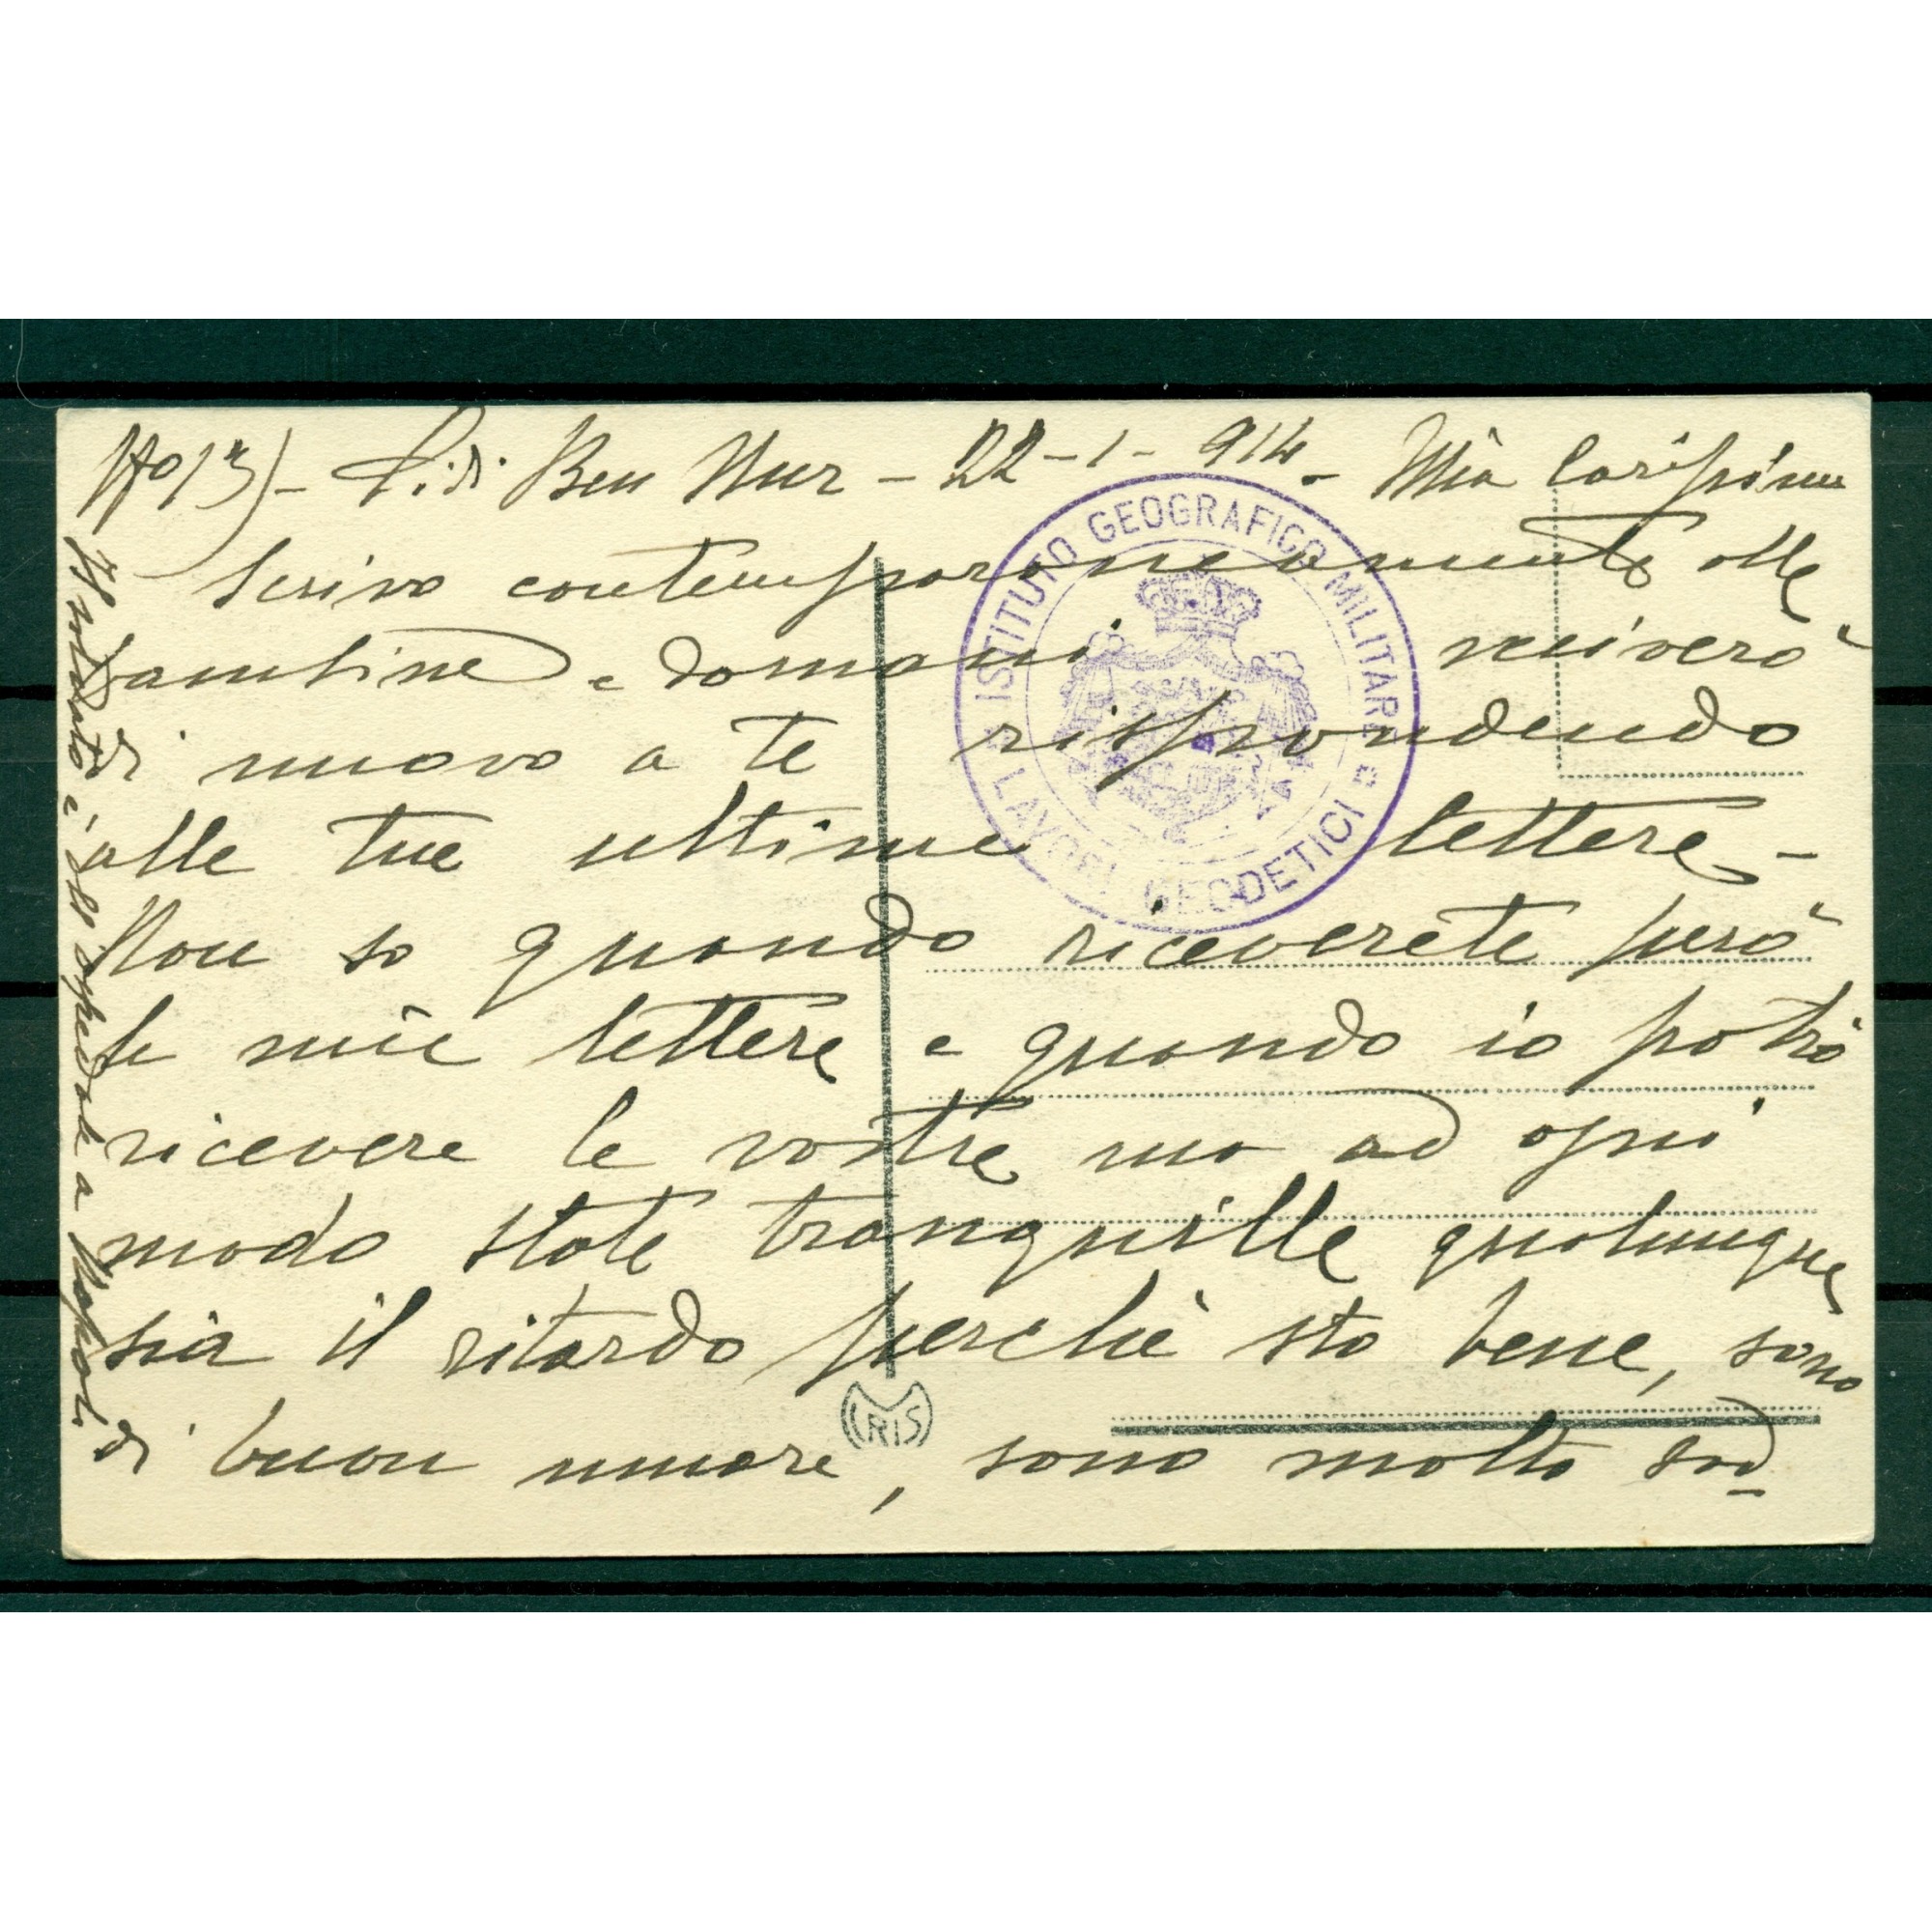 No 13) - Sidi Ben Nur - 22-1-914. - Mia Carissima
Scrivo contemporaneamente alle
bambine e domani scriverò
di nuovo a te rispondendo
alle tue ultime lettere -
Non so quando riceverete però
le mie lettere e quando io potrò
ricevere le vostre ma ad ogni
modo state tranquille qualunque
sia il ritardo perchè sto bene, sono
di buon umore, sono molto sod
Il soldato è all'ospedale a Napoli
ISTITUTO GEOGRAFICO MILITARE
LAVORI GEODETICI
CRIS